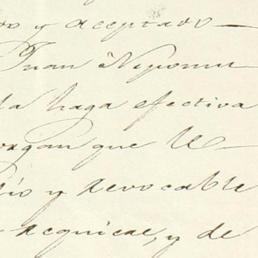 y aceptado
Juan Nepomu
la haga efectiva
que
y revocable
adquirae, y de